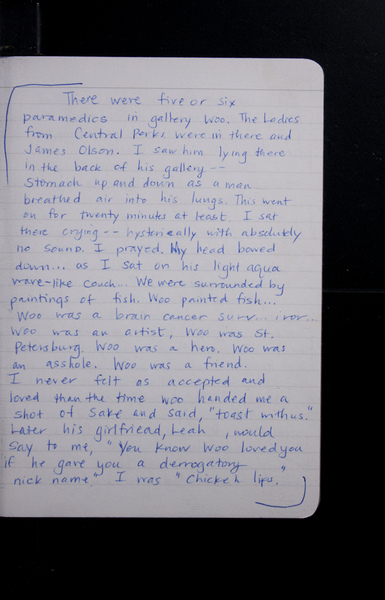 There were five or six
paramedics in gallery Woo. The Ladies
from Central Perk, were in there and
James Olson. I saw him lying there
in the back of his gallery --
Stomach up and down as a man
breathed air into his lungs. This went
on for twenty minutes at least. I sat
there crying -- hysterically with absolutely
no sound. I prayed. My head bowed
down... as I sat on his light aqua
wave-like couch... We were surrounded by
paintings of fish. Woo painted fish...
Woo was a brain cancer surv...ivor...
Woo was an artist, Woo was St.
Petersburg. Woo was a hero. Woo was
an asshole. Woo was a friend.
I never felt as accepted and
loved than the time woo handed me a
shot of Sake and said, "toast with us."
Later his girlfriend, Leah, would
say to me, "You know Woo loved you
if he gave you a derrogatory
nick name" I was "Chicken lips."